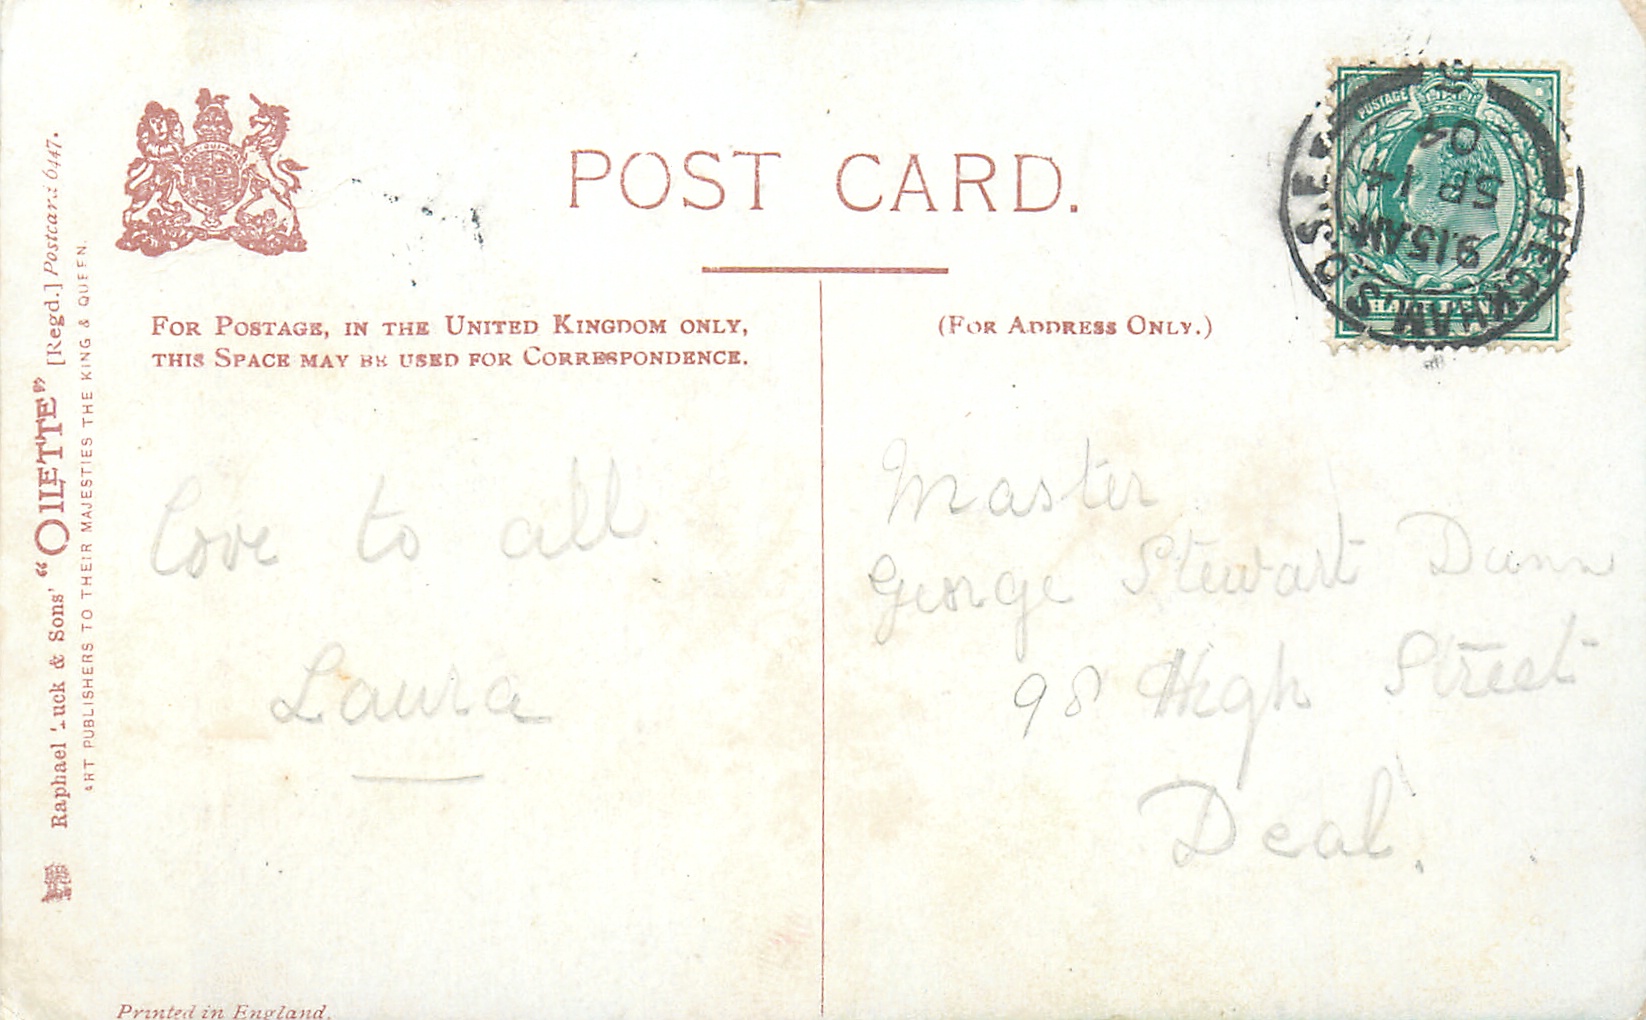 POST CARD.
FOR POSTAGE, IN THE UNITED KINGDOM ONLY,
THIS SPACE MAY BE USED FOR CORRESPONDENCE.
(FOR ADDRESS ONLY.)
Love to all.
Laura
Master
George Stewart Dunn
98 High Street
Deal.
Raphael Tuck & Sons' “OILETTE” [Regd.] Postcard 6447.
ART PUBLISHERS TO THEIR MAJESTIES THE KING & QUEEN.
Printed in England.
POSTAGE
PECKHAM S.O. S.E.
9 15 AM
SP 14
04